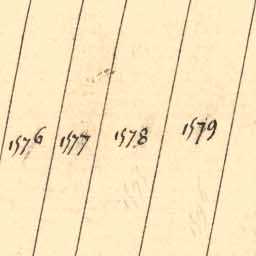 1576 1577 1578 1579